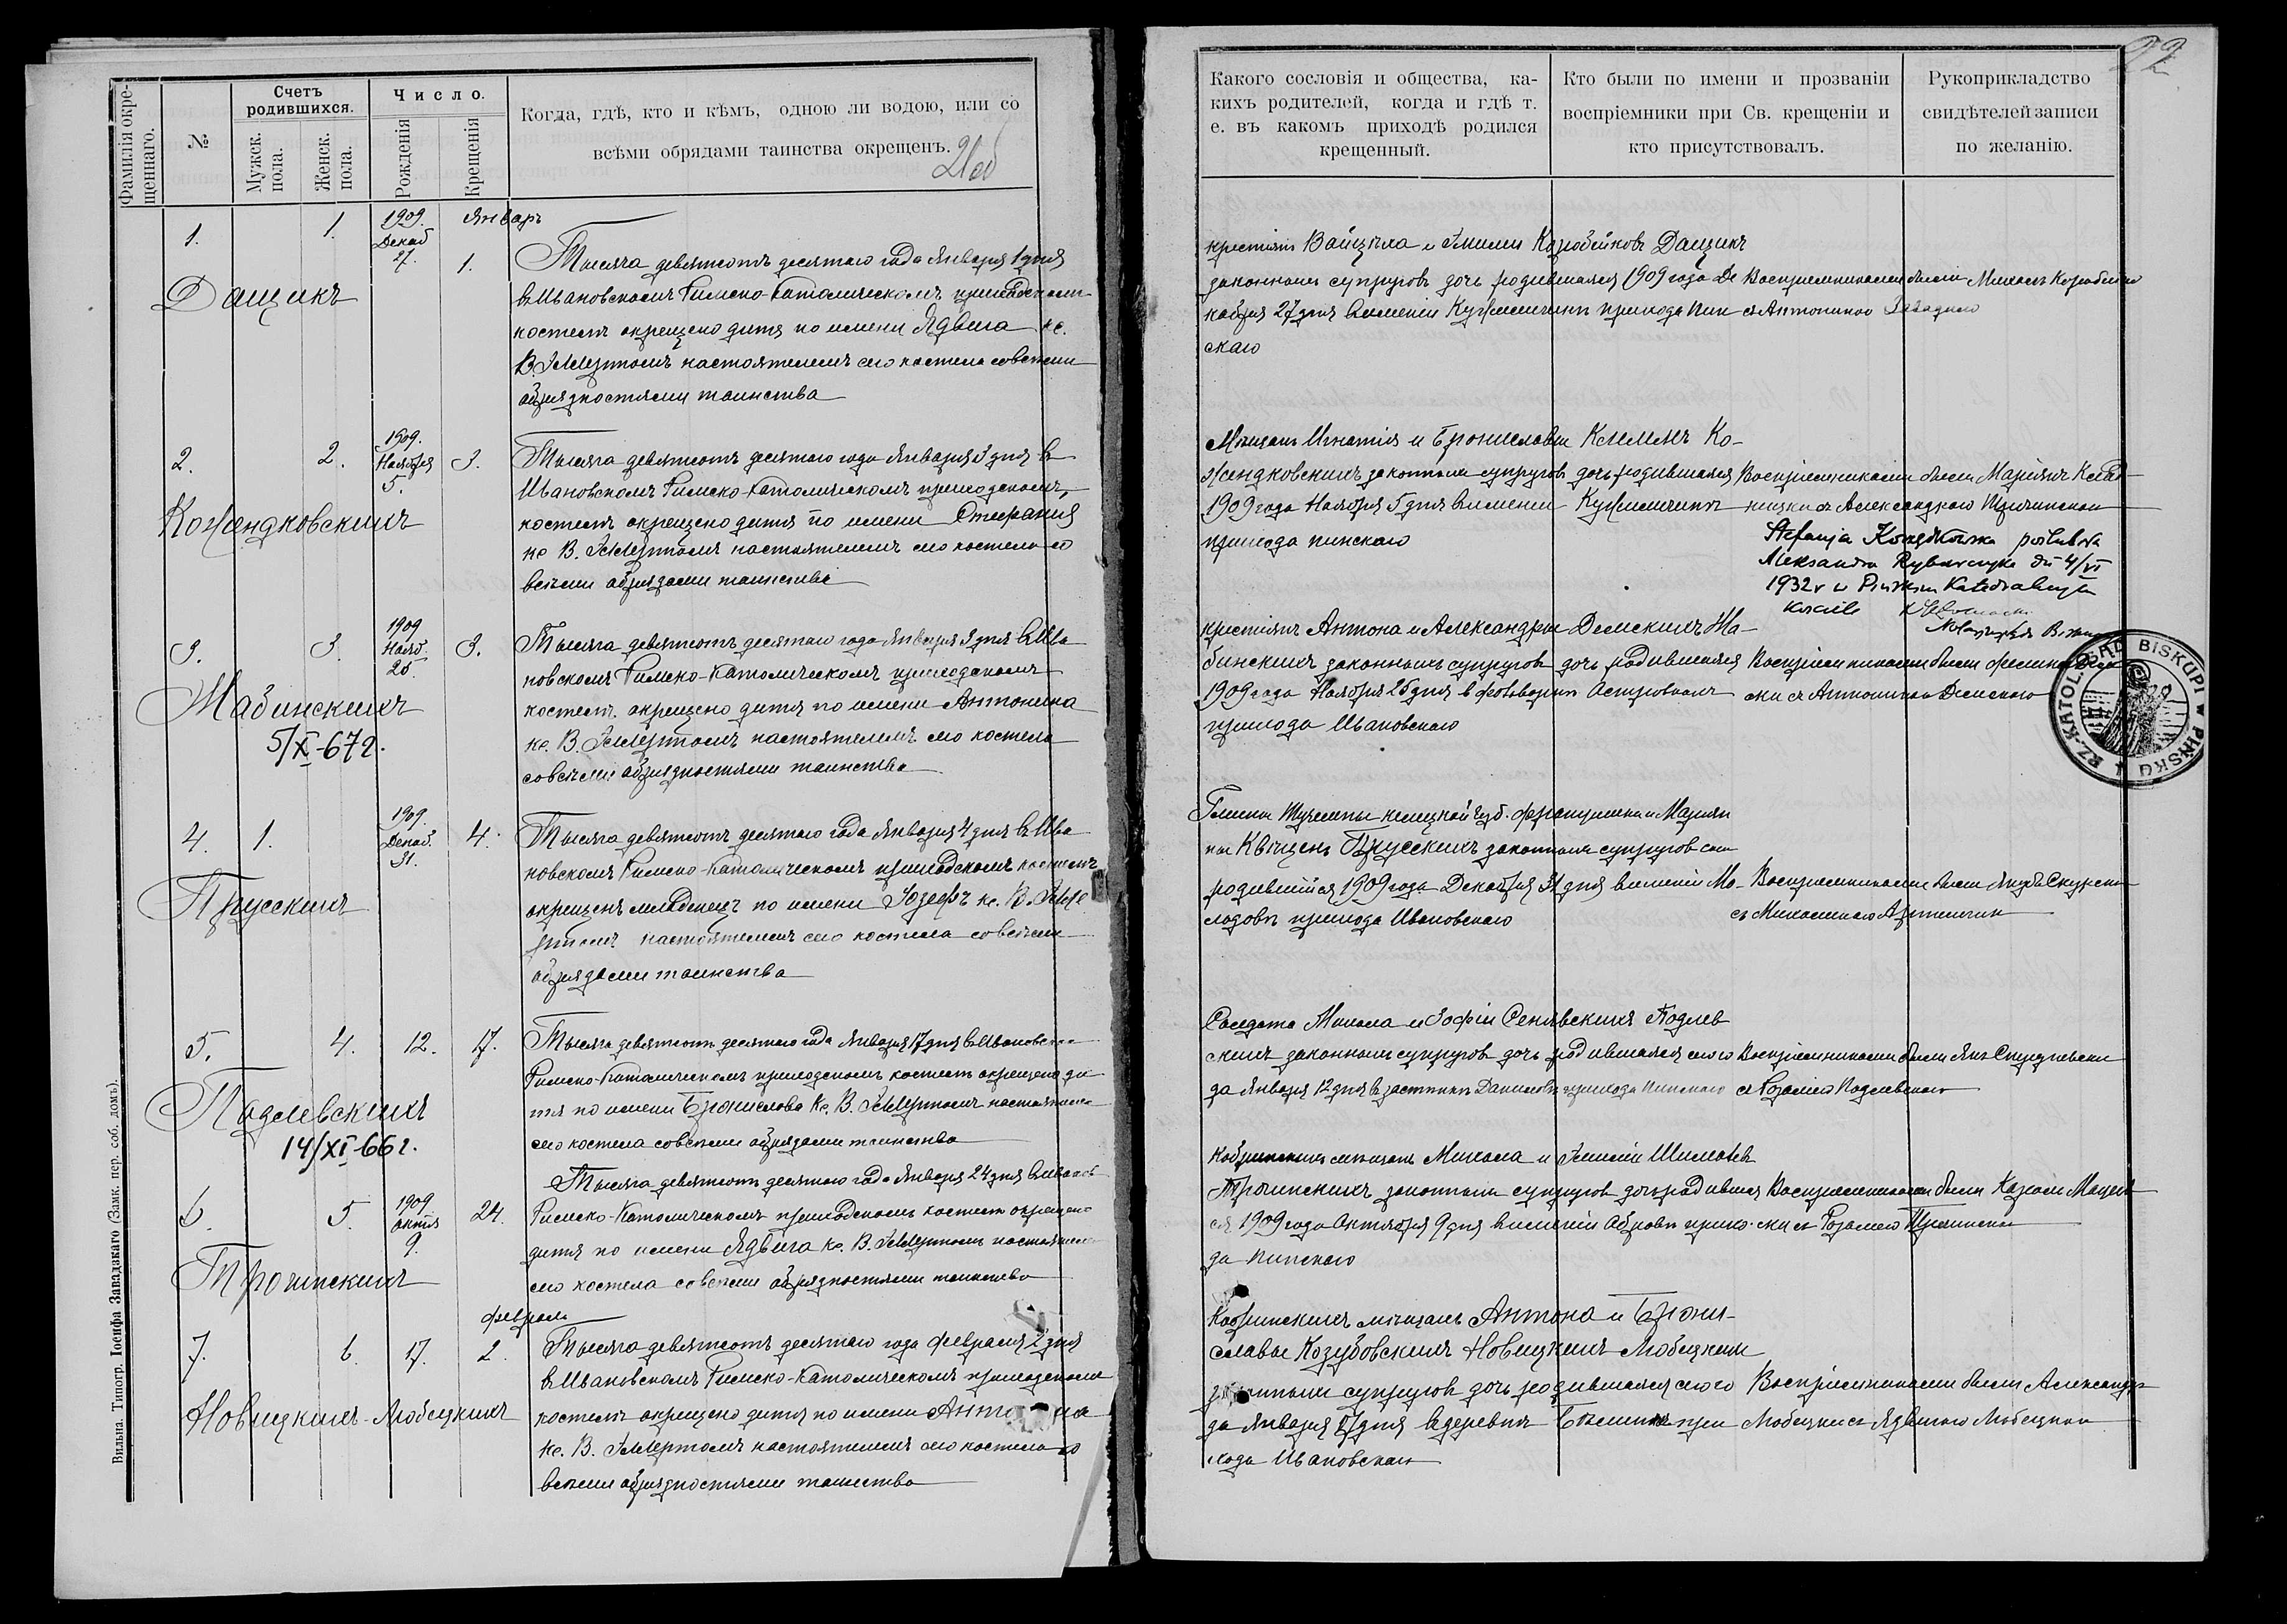 Фамилія окре-
щеннаго.
№
Счетъ
родившихся.
Мужск.
пола.
Женск.
пола.
Число.
Рожденія
Крещенія
Когда, гдѣ, кто и кѣмъ, одною ли водою, или со
всѣми обрядами таинства окрещенъ.
21об
1.
1.
1909.
Декаб
27.
Январь
1.
Дащикъ
Тысяча девятьсотъ десятаго года Января 1 дня
въ Ивановскомъ Римско-Католическомъ приходскомъ
костелѣ окрещено дитя по имени Ядвига кс.
В. настоятелемъ сего костела со всѣми
обрядностями таинства
2.
2.
1909.
Ноября
5.
3.
Кожендковскихъ
Тысяча девятьсотъ десятаго года Января 3 дня въ
Ивановскомъ Римско-Католическомъ приходскомъ
костелѣ окрещено дитя по имени Стефания
кс В. настоятелемъ сего костела со
всѣми обрядами таинства
3.
3.
1909
Нояб.
25.
3.
Жабинскихъ
5/XI-67г.
Тысяча девятьсотъ десятаго года Января 3 дня въ Ива
новскомъ Римско-Католическомъ приходскомъ
костелѣ окрещено дитя по имени Антонина
кс. В. настоятелемъ сего костела
со всѣми обрядностями таинства
4.
1.
1909.
Декаб.
31.
4.
Прусскихъ
Тысяча девятьсотъ десятаго года Января 4 дня въ Ива
новскомъ Римско-Католическомъ приходскомъ костелѣ
окрещенъ младенецъ по имени Юзефъ кс. В.
настоятелемъ сего костела со всѣми
обрядами таинства
5.
4.
12.
17.
Подлевскихъ
14/XI-66г.
Тысяча девятьсотъ десятаго года Января 17 дня въ Ивановско
Римско-Католическомъ приходскомъ костелѣ окрещено ди
тя по имени Бронислава кс. В. настоятелем
сего костела со всѣми обрядами таинства
6.
5.
1909
Октяб
9.
24.
Трогинскихъ
Тысяча девятьсотъ десятаго года Января 24 дня въ Иванов
Римско-Католическомъ приходскомъ костелѣ окрещено
дитя по имени Ядвига кс. В. настоятелем
сего костела со всѣми обрядностями таинства
Февраль
7.
6.
17.
2.
Новицкихъ-Любецкихъ
Тысяча девятьсотъ десятаго года Февраля 2 дня
въ Ивановскомъ Римско-Католическомъ приходскомъ
костелѣ окрещено дитя по имени
кс. В. настоятелемъ сего костела со
всѣми обрядностями таинства
Вильна. Типогр. Іосифа Завадзкаго (Замк. пер. соб. домъ).
22
Какого сословія и общества, ка-
кихъ родителей, когда и гдѣ т.
е. въ какомъ приходѣ родился
крещенный.
Кто были по имени и прозваніи
воспріемники при Св. крещеніи и
кто присутствовалъ.
Рукоприкладство
свидѣтелей записи
по желанію.
крестьянъ Войцѣха и Эмиліи Коробейковъ Дащикъ
законныхъ супруговъ дочь родившаяся 1909 года Де
кабря 27 дня въ имѣніи Кужеличинъ прихода Пин
скаго
Воспріемниками были Михаль
съ Антониною
Мѣщанъ Игнатія и Брониславы Клемъ Ко-
жендковскихъ законныхъ супруговъ дочь родившаяся
1909 года Ноября 5 дня въ имѣніи Кужеличинъ
прихода пинскаго
Воспріемниками были Маріянъ
съ Александрою
Stefanja poślubiła
Aleksandra Rybarczyka dn 4/VI
1932 r w Pińskim Katedralnym
kościele
крестьянъ Антона и Александры Демскихъ Жа-
бинскихъ законныхъ супруговъ дочь родившаяся
1909 года Ноября 25 дня в фольваркѣ Островкахъ
прихода Ивановскаго
Воспріемниками были
съ Антониною Демскою
RZ.-KATOL. SĄD BISKUPI w PIŃSKU
Гмины келецкой губ. Францишка и Маріян
ны Квѣцень Прусскихъ законныхъ супруговъ сын
родившійся 1909 года Декабря 31 дня въ имѣніи Мо-
лодовѣ прихода Ивановскаго
Воспріемниками были Якубъ
съ Михалиною
Солдата Михала и Зофіи Сенявскихъ Подлев
скихъ законныхъ супруговъ дочь родившаяся сего го
да Января 12 дня въ застѣнкѣ прихода Пинскаго
Воспріемниками были Янъ
съ Розаліею Подлевскою
Кобринскихъ мѣщанъ Михала и Эмиліи Шиманъ
Трогинскихъ законныхъ супруговъ дочь родивша
ся 1909 года Октября 9 дня въ имѣніи Обровъ прихо
да Пинскаго
Воспріемниками были Кароль
съ Розаліею
Кобринскихъ мѣщанъ Антона и Брони-
славы Козубовскихъ Новицкихъ Любецкихъ
законныхъ супруговъ дочь родившаяся сего го
да Января 17 дня въ деревнѣ при
хода Ивановскаго
Воспріемниками были Александръ
Любецкій съ Ядвигою Любецкою